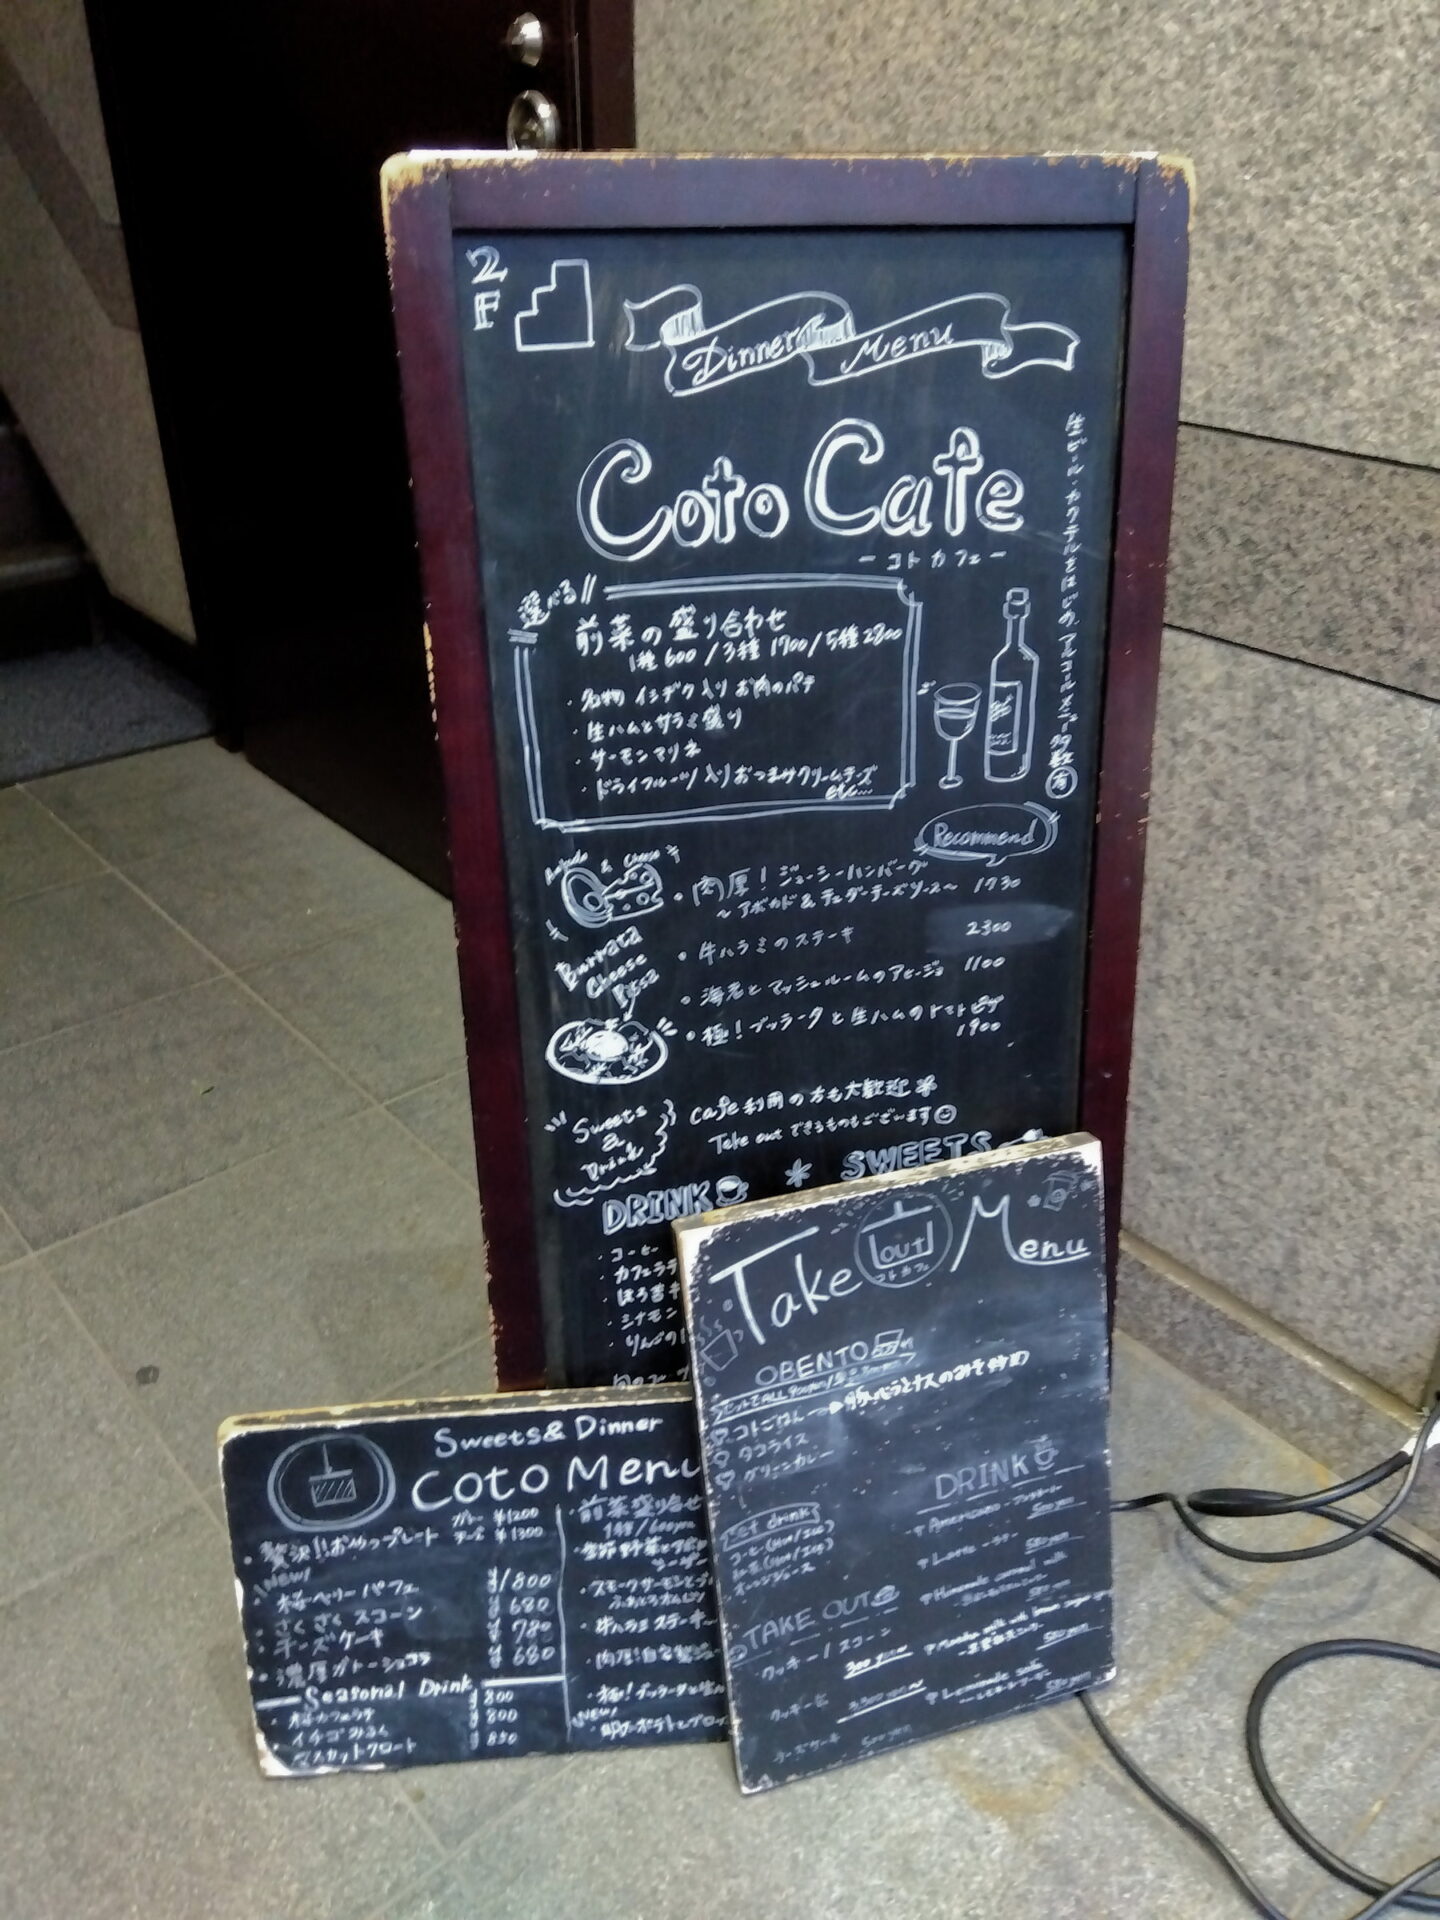 2F
Dinner Menu
Coto Cafe
－コトカフェ－
生ビール・カクテルをはじめ、アルコールメニュー多数有
選べる!!
前菜の盛り合わせ
1種 600 / 3種 1700 / 5種 2800
・名物 イチヂク入り お肉のパテ
・生ハムとサラミ盛り
・サーモンマリネ
・ドライフルーツ入りおつまみクリームチーズ
etc...
Recommend
& Cheese
・肉厚！ジューシーハンバーグ
～アボカド&チェダーチーズソース～ 1730
・牛ハラミのステーキ 2300
・海老とマッシュルームのアヒージョ 1100
Burrata
Cheese
Pizza
・極！ブッラータと生ハムのトマトピザ
1900
Sweets
&
Drink
cafe利用の方も大歓迎
Take out できるものもございます
DRINK * SWEETS
・コーヒー
・カフェラテ
・ほろ苦キ
・シナモン
・りんごの
Take out Menu
コトカフェ
OBENTO
コトごはん → 豚バラとナスのみそ炒め
タコライス
グリーンカレー
Set drink
コーヒー (Hot/Ice)
紅茶 (Hot/Ice)
オレンジジュース
DRINK
Americano
500yen
Latte
TAKE OUT
クッキー / スコーン
300 yen～
チーズケーキ 500yen
Lemonade soda
580yen
Sweets&Dinner
Coto Menu
・贅沢!!おやつプレート
¥1200
¥1300
NEW!
・桜ベリーパフェ ¥1800
・さくさく スコーン ¥680
・チーズケーキ ¥780
・濃厚ガトーショコラ ¥680
Seasonal Drink
・桜カフェラテ ¥800
・イチゴみるく ¥800
・マスカットフロート ¥850
・前菜盛り合せ
1種/600yen
・季節野菜とアボ
・スモークサーモンと
・牛ハラミステーキ
・肉厚!自家製ジュー
・極！ブッラータと生ハ
NEW!
・明太ポテトとブロッ